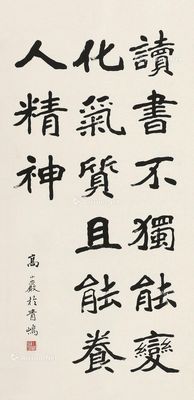 讀書不獨能變
化氣質且能養
人精神
高巖於貴嶠